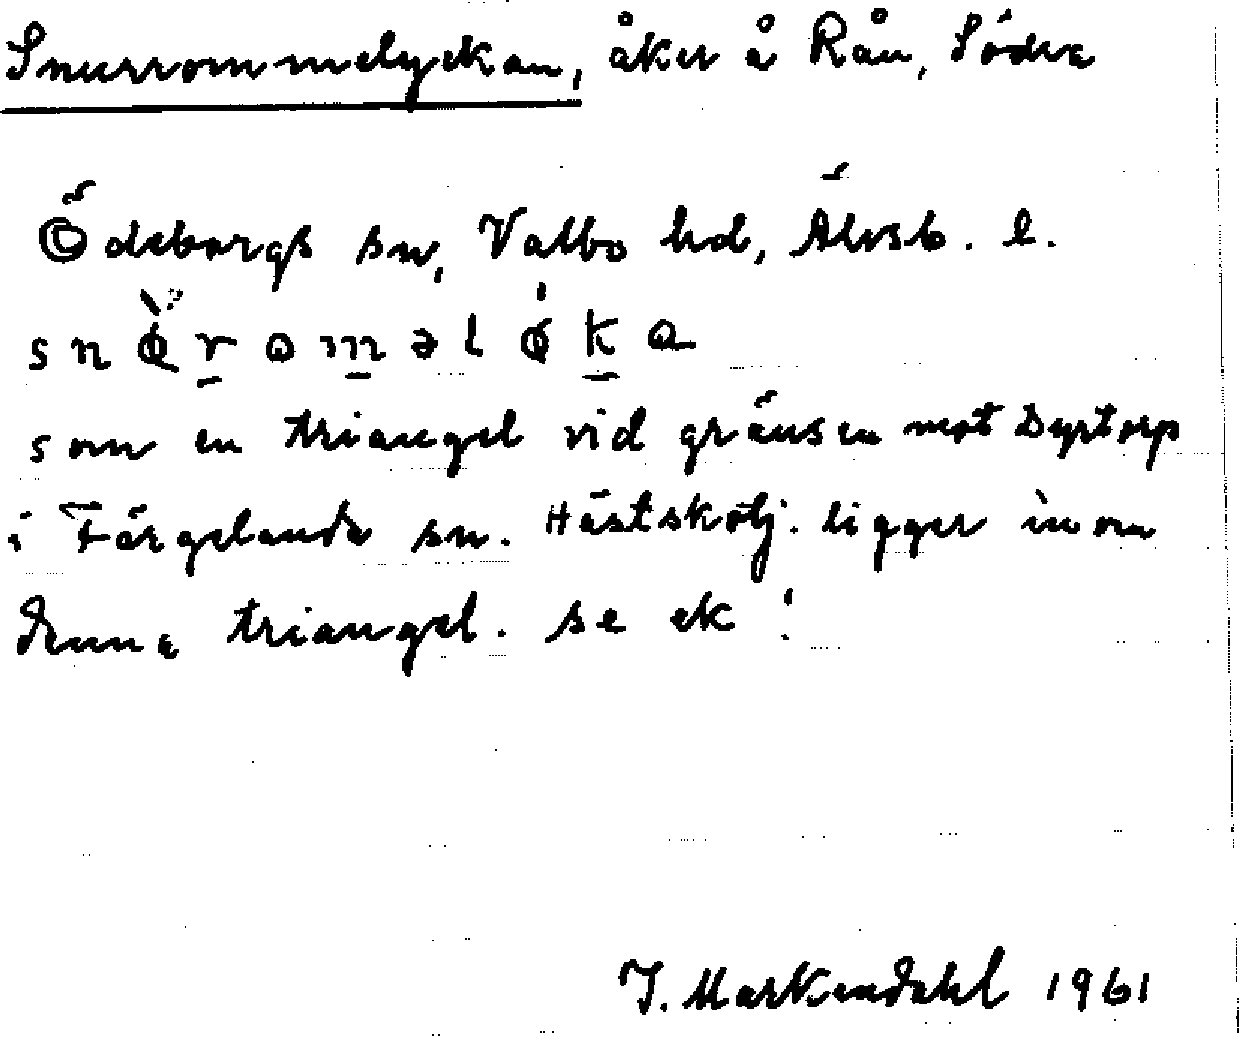 Snurrommelyckan, åker å Rån, Södra
Ödeborgs sn, Valbo hd, Älvsb. l.
som en triangel vid gränsen mot Dyrtorp
i Färgelanda sn. Hästskötj. ligger inom
denna triangel. se ek !
J. Markendahl 1961